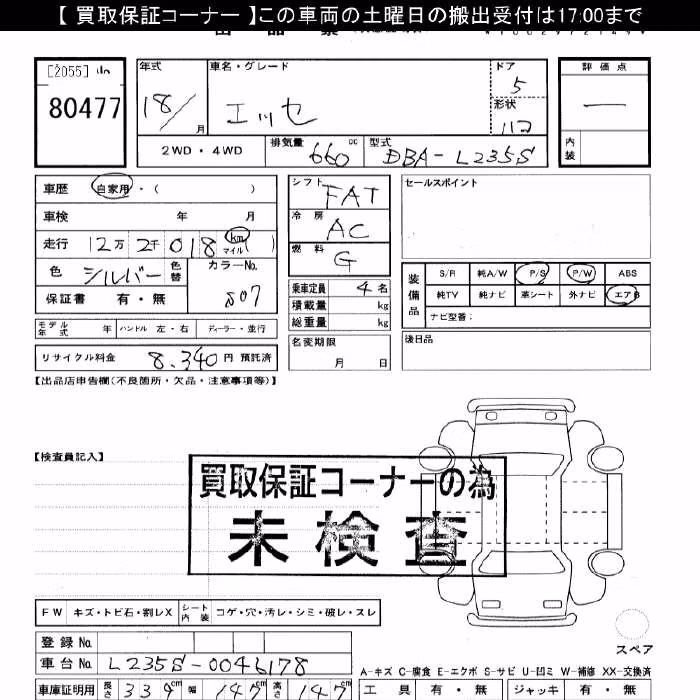 【 買取保証コーナー 】この車両の土曜日の搬出受付は17:00まで
[2055]
80477
年式 18/ 月
車名・グレード
エッセ
ドア 5
形状 112
評価点
―
内装
2WD・4WD
排気量 660 cc
型式 DBA-L235S
車歴 自家用・( )
車検 年 月
走行 12万 2千 018 km マイル ( )
色 シルバー 色替
カラーNo. S07
保証書 有・無
シフト FAT
冷房 AC
燃料 G
乗車定員 4 名
積載量 kg
総重量 kg
セールスポイント
装備品
S/R 純A/W P/S P/W ABS
純TV 純ナビ 革シート 外ナビ エアB
ナビ型番:
モデル年式 年 ハンドル 左・右 ディーラー・並行
名変期限
月 日
後日品
リサイクル料金 8,340 円 預託済
【出品店申告欄(不良箇所・欠品・注意事項等)】
【検査員記入】
買取保証コーナーの為
未検査
FW キズ・トビ石・割レX シート内装 コゲ・穴・汚レ・シミ・破レ・スレ
スペア
登録 No.
車台 No. L235S-0046178
A-キズ C-腐食 E-エクボ S-サビ U-凹ミ W-補修 XX-交換済
車庫証明用 長さ 339 cm 幅 147 cm 高さ 147 cm
工具 有・無 ジャッキ 有・無